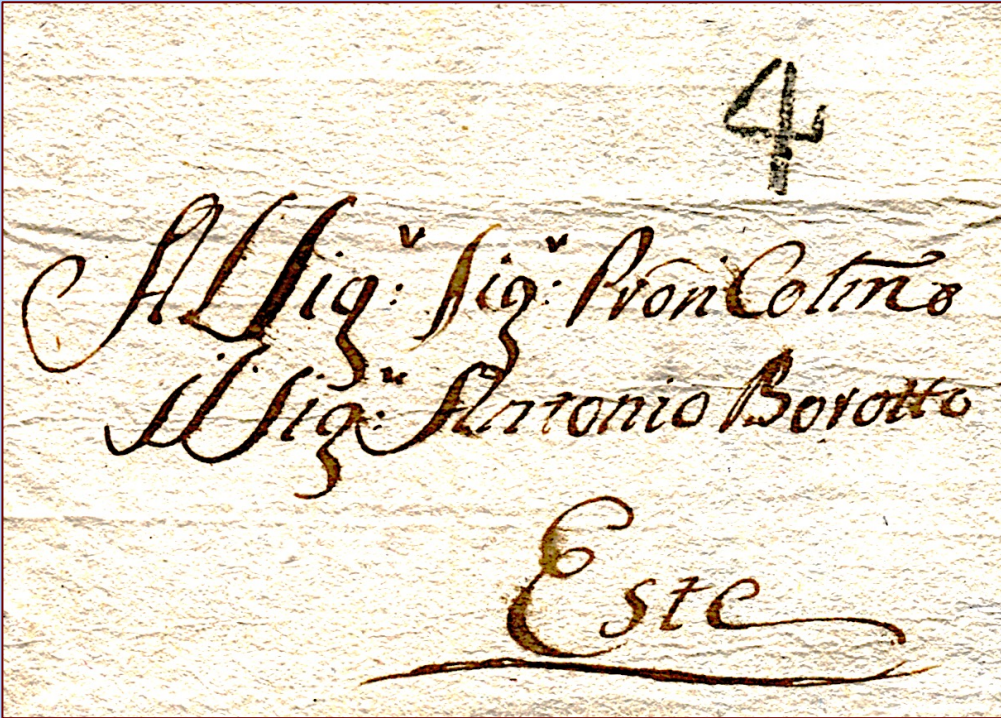 4
Al Sig:r Sig:r Pron̄ Colm̄o
Il Sig:r Antonio Borotto
Este